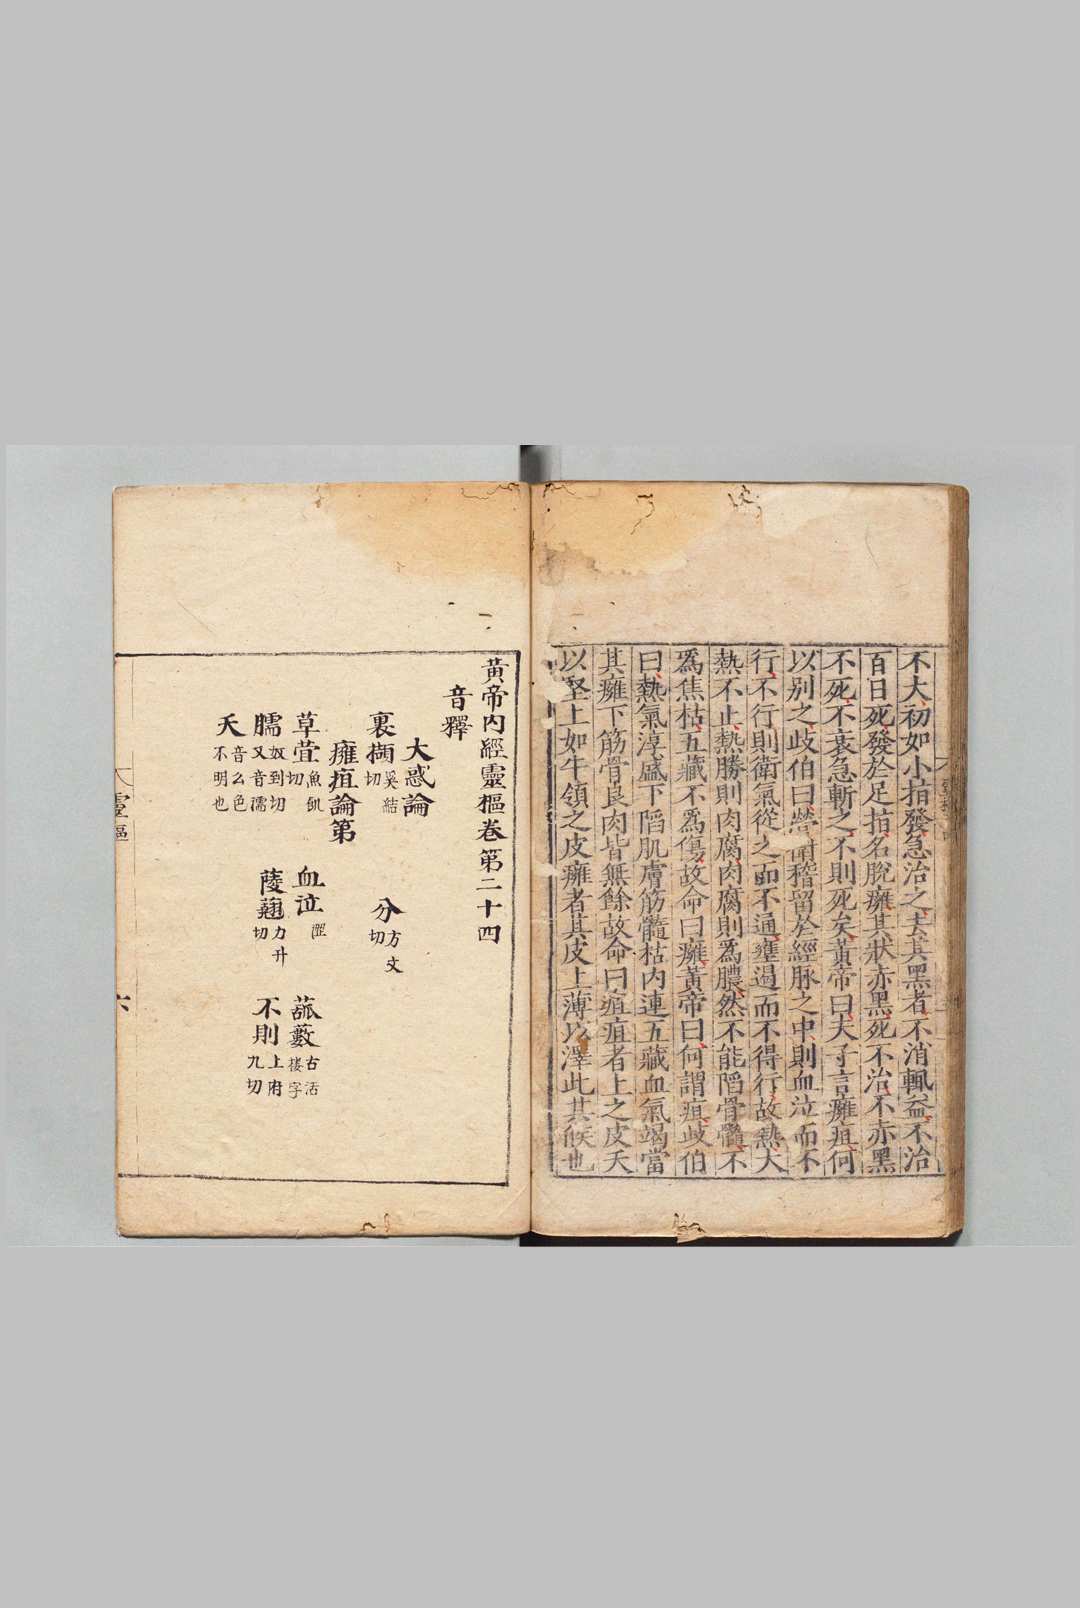 不大初如小指發急治之去其黑者不消輒益不治
百日死發於足指名脫癰其狀赤黑死不治不赤黑
不死不衰急斬之不則死矣黃帝曰夫子言癰疽何
以別之歧伯曰營衛稽留於經脉之中則血泣而不
行不行則衛氣從之而不通壅遏而不得行故熱大
熱不止熱勝則肉腐肉腐則爲膿然不能陷骨髓不
爲焦枯五藏不爲傷故命曰癰黃帝曰何謂疽歧伯
曰熱氣淳盛下陷肌膚筋髓枯内連五藏血氣竭當
其癰下筋骨良肉皆無餘故命曰疽疽者上之皮夭
以堅上如牛領之皮癰者其皮上薄以澤此其候也
黃帝内經靈樞卷第二十四
音釋
大惑論
裹擷奚結切 分方文切
癰疽論第
草萓魚飢切 血泣澀 菰藪古活樓字
臑奴到切又音濡 䔖藮力升切 不則上府九切
夭音么色不明也
靈樞
六